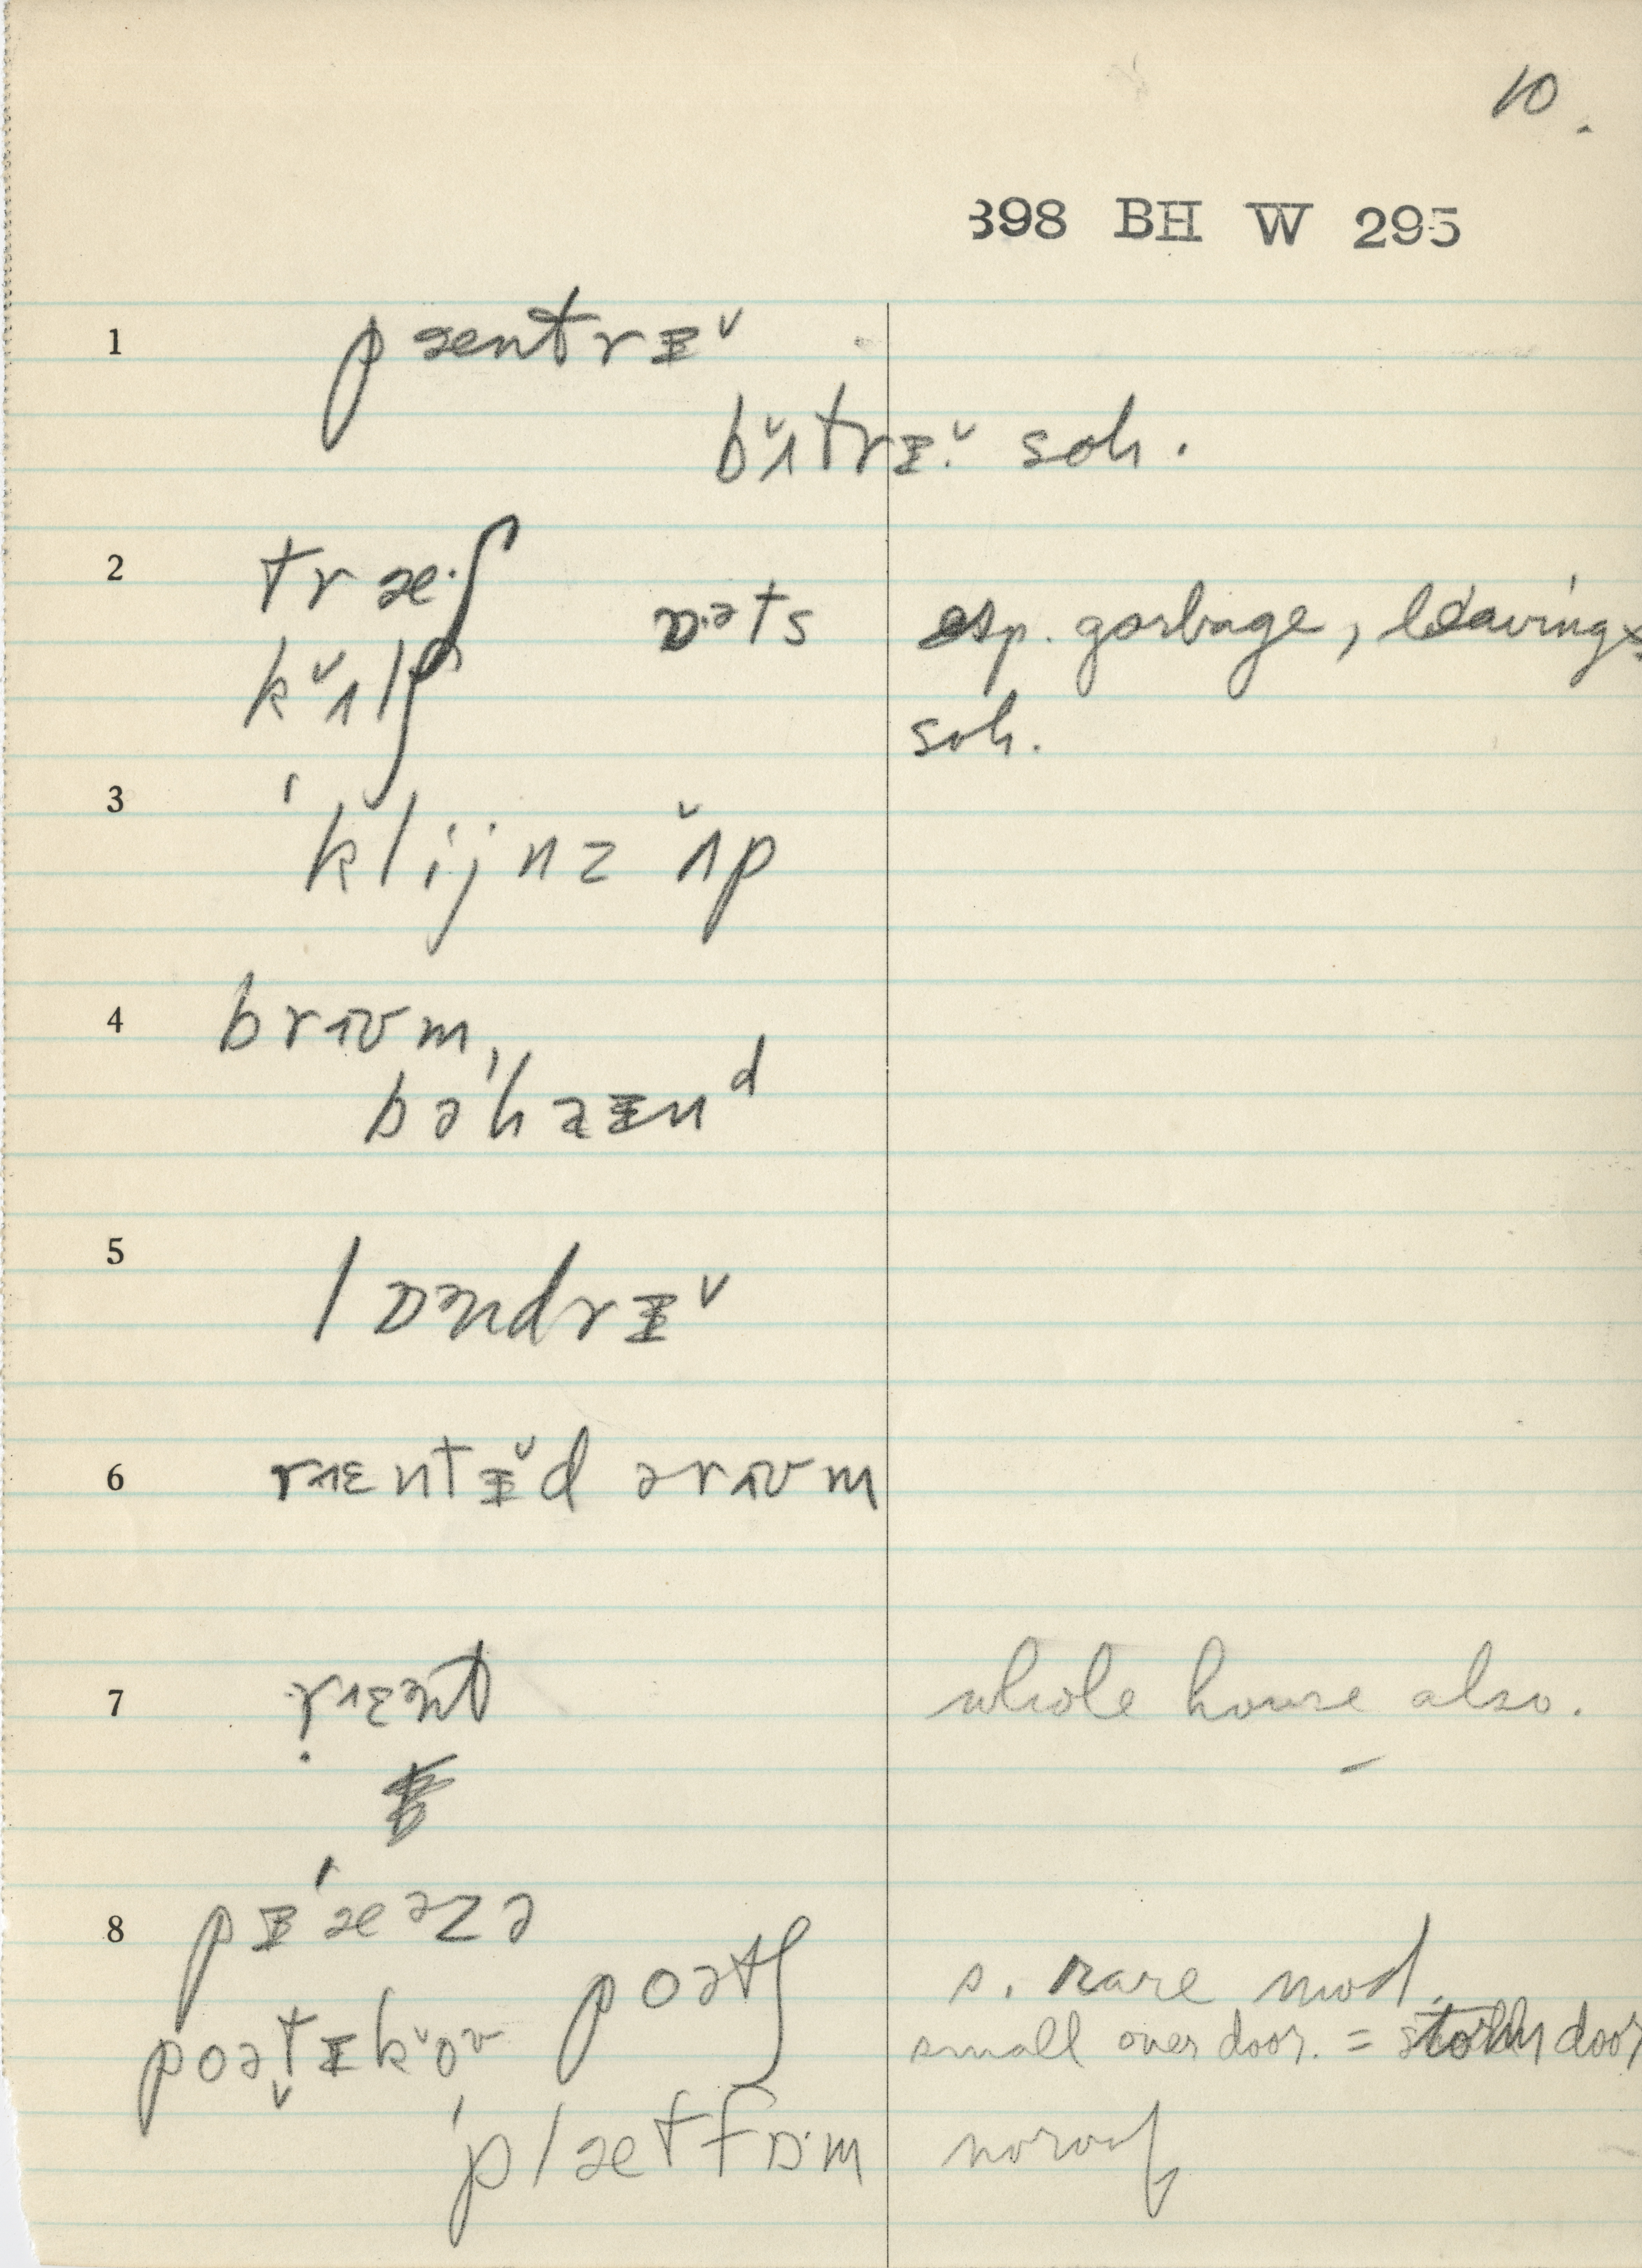 10.
398 BH W 295
1 pæntrɪ˅
bʌ̆trɪ.˅ soh.
2 træ·ʃ ɒ·əts esp. garbage, leavings.
kʌ̆lʃ soh.
3 ˈklijnz ʌ̆p
4 brɪʊm,
bəˈhaɪnᵈ
5 lɒəndrɪ˅
6 rɪɛntɪ̆d ərɪʊm
7 rɪɛənt whole house also.
8 pɪˈæəzə
poətʃ s. rare mod.
poətɪkŏʊ small over door. = storm door
ˈplætfɒ·m no roof